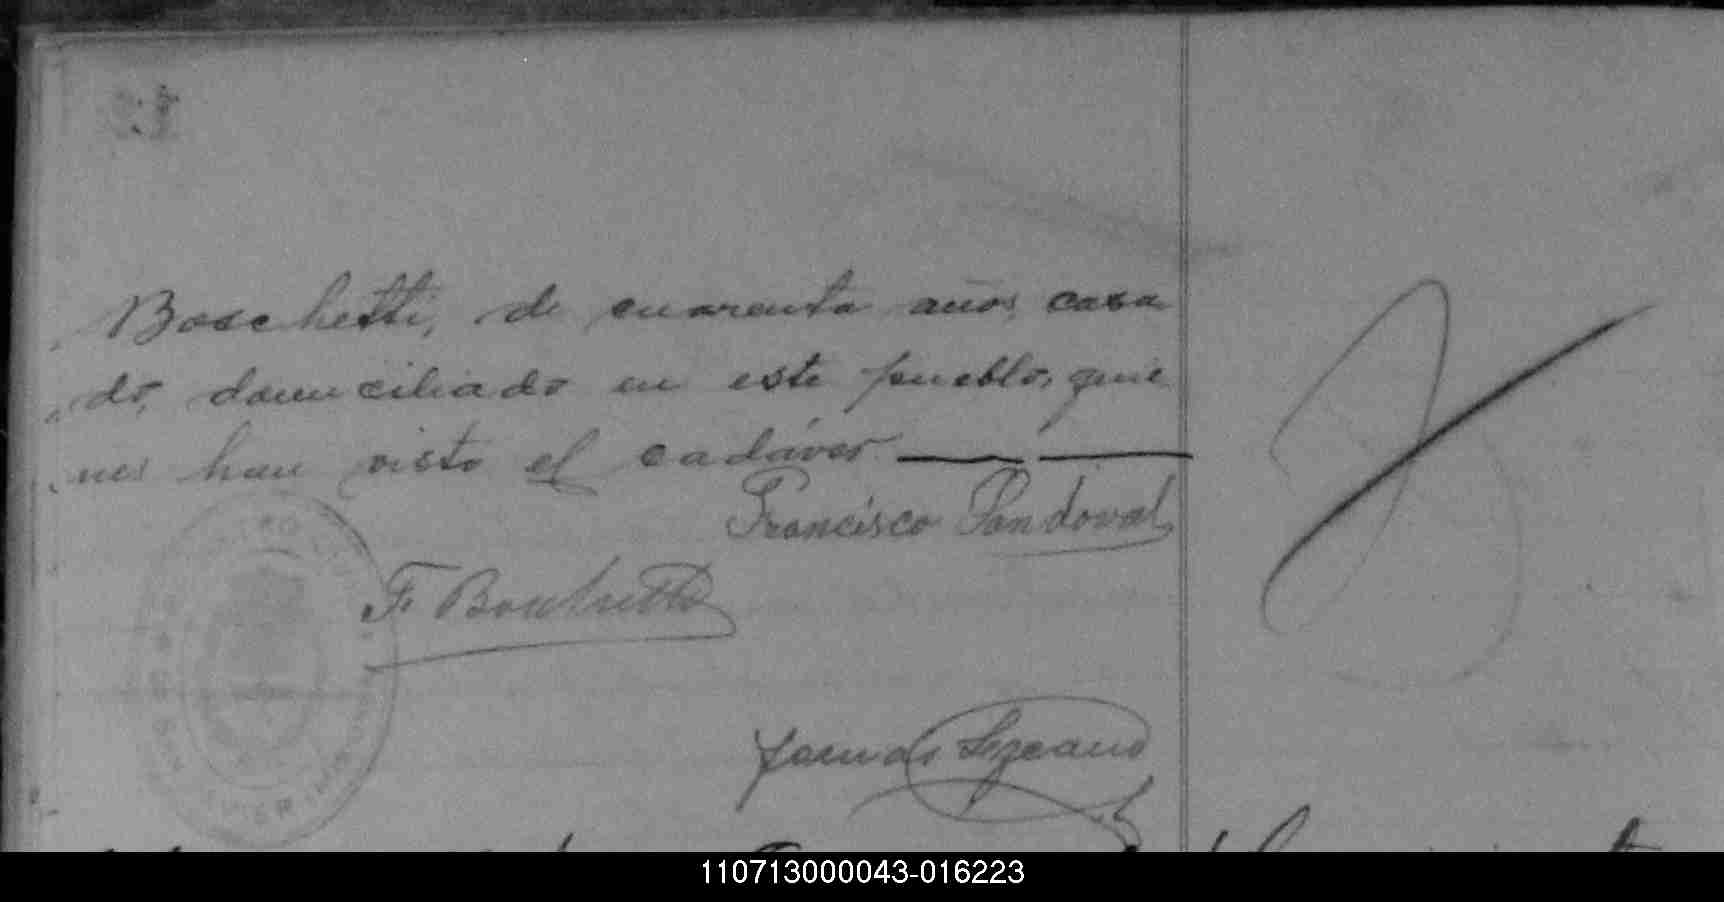 Boschetti, de cuarenta años, casa
do, domiciliado en este pueblo, quie
nes han visto el cadáver
Francisco Sandoval
F. Boschetti
110713000043-016223